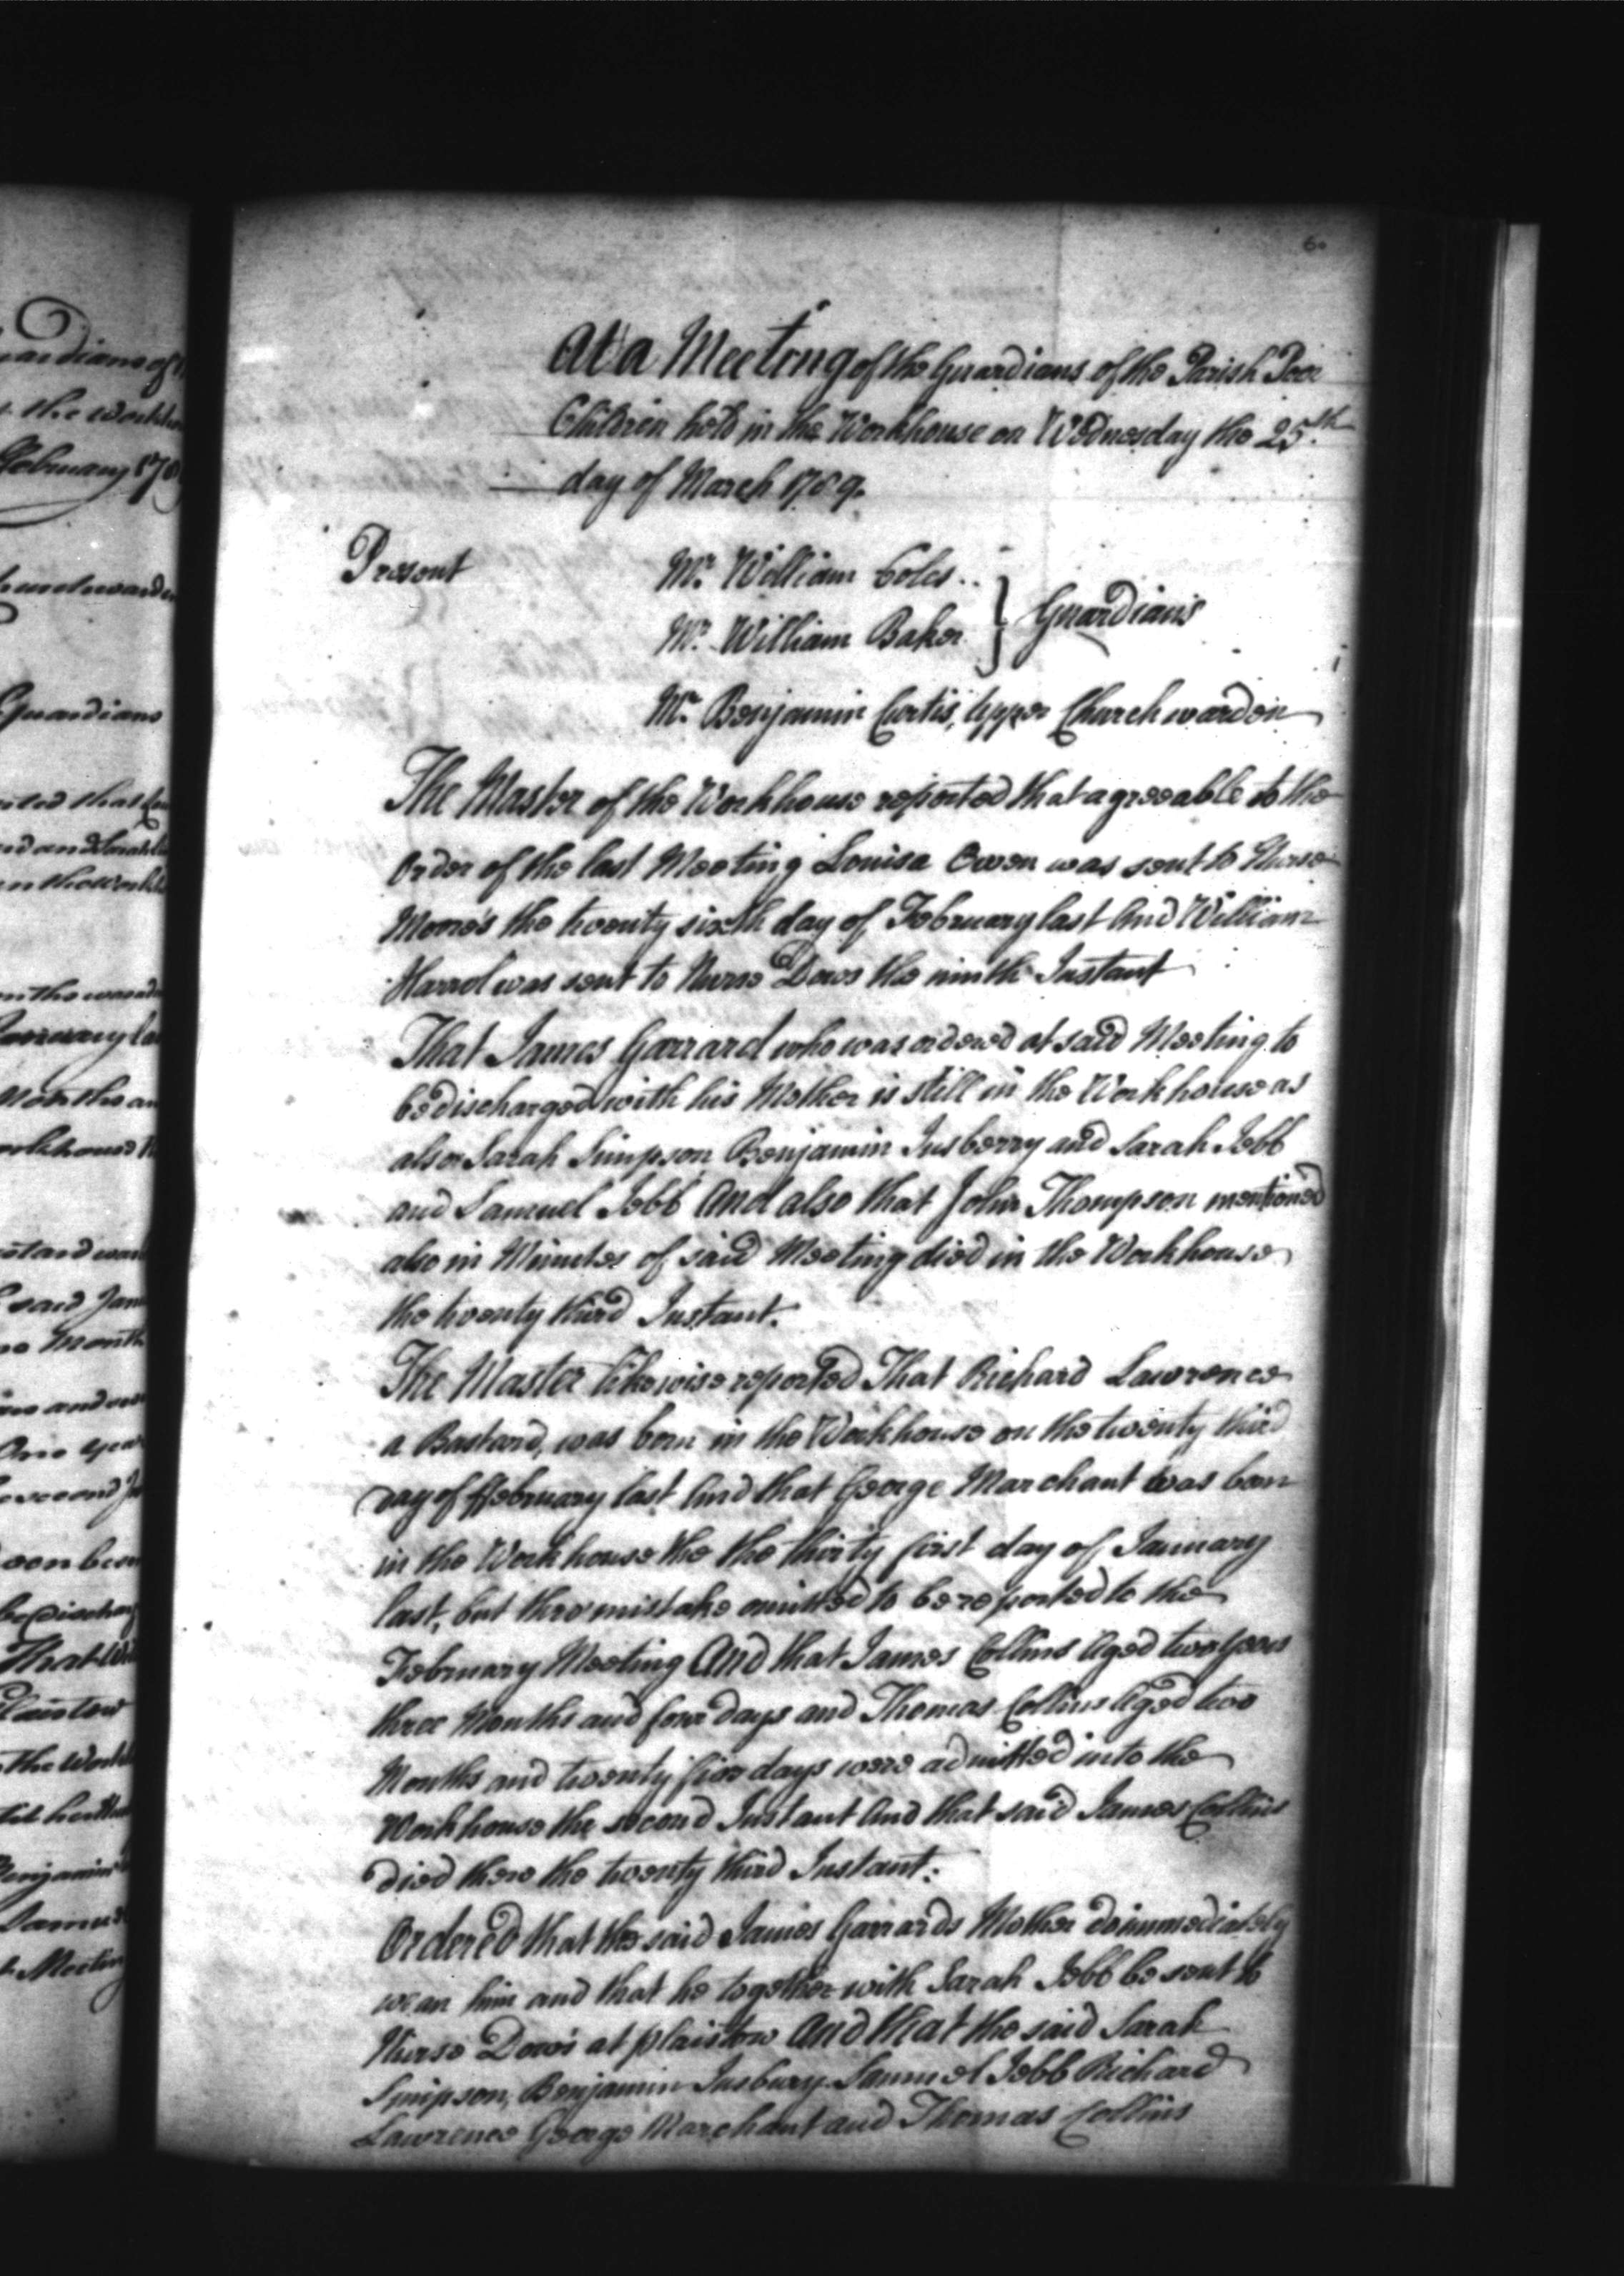 60
At a Meeting of the Guardians of the Parish Poor
Children held in the Workhouse on Wednesday the 25th
day of March 1789.
Present
Mr. William Coles
Mr. William Baker
Guardians
Mr. Benjamin Curtis, Upper Churchwarden
The Master of the Workhouse reported that agreeable to the
Order of the last Meeting Louisa Owen was sent to Nurse
the twenty sixth day of February last And William
Harrod was sent to Nurse Dows the ninth Instant
That James Garrard who was ordered at said Meeting to
be discharged with his Mother is still in the Workhouse as
also Sarah Simpson Benjamin Insberry and Sarah Jebb
and Samuel Jebb And also that John Thompson mentioned
also in Minutes of said Meeting died in the Workhouse
the twenty third Instant.
The Master likewise reported That Richard Lawrence
a Bastard, was born in the Workhouse on the twenty third
day of ffebruary last And that George Marchant was born
in the Workhouse the the thirty first day of January
last, but thro' mistake omitted to be reported to the
February Meeting And that James Collins Aged two Years
three Months and four days and Thomas Collins Aged two
Months and twenty five days were admitted into the
Workhouse the second Instant And that said James Collins
died there the twenty third Instant.
Ordered that the said James Garrards Mother do immediately
wean him and that he together with Sarah Jebb be sent to
Nurse Dows at plaistow And that the said Sarah
Simpson, Benjamin Insbury Samuel Jebb Richard
Lawrence George Marchant and Thomas Collins